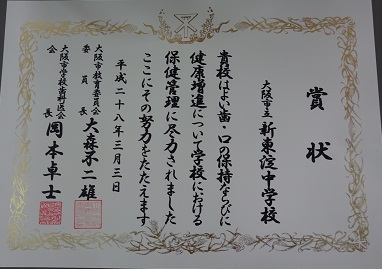 賞状
大阪市立 新東淀中学校
貴校はよい歯・口の保持ならびに
健康増進について学校における
保健管理に尽力されました
ここにその努力をたたえます
平成二十八年三月三日
大阪市教育委員会
委員長 大森不二雄
大阪市学校歯科医会
会長 岡本卓士